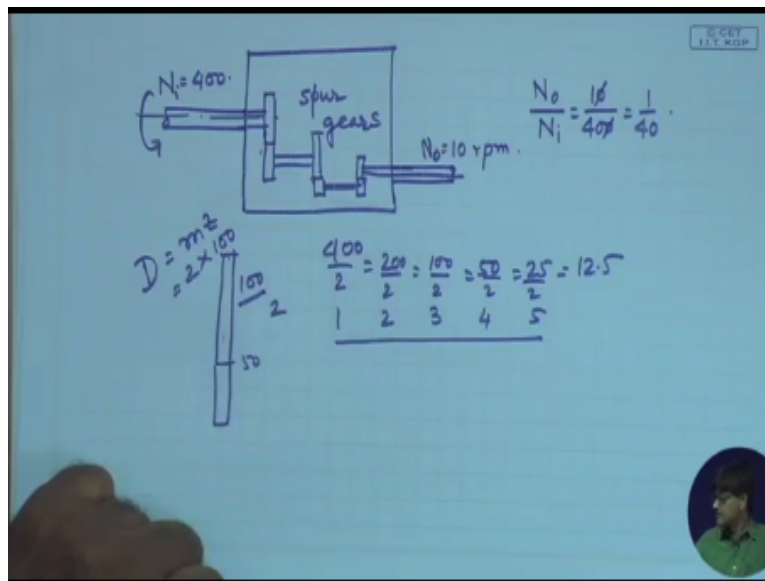 © CET
I.I.T. KGP
Ni = 400.
spur
gears
No = 10 rpm.
No/Ni = 10/400 = 1/40.
D = mz
= 2 × 100
100/2
50
400/2 = 200/2 = 100/2 = 50/2 = 25/2 = 12.5
1 2 3 4 5